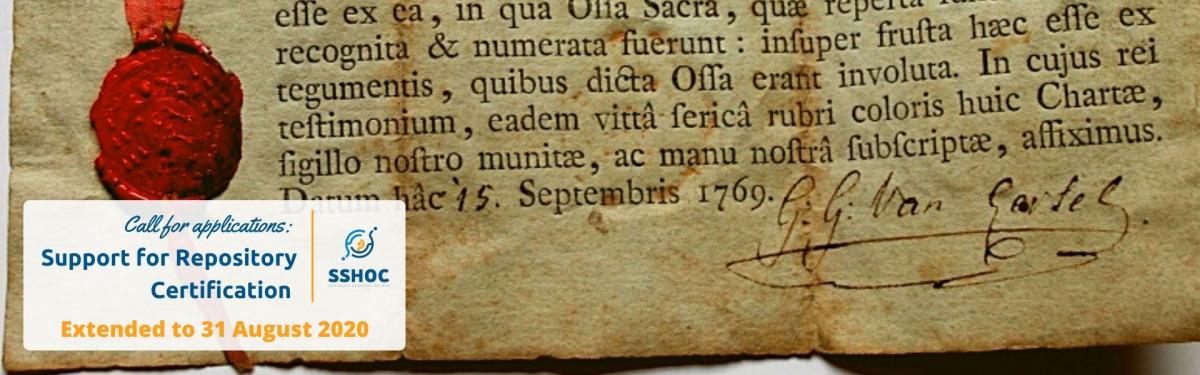 eſſe ex ea, in qua Oſſa Sacra, quæ reperta
recognita & numerata fuerunt : inſuper fruſta hæc eſſe ex
tegumentis, quibus dicta Oſſa erant involuta. In cujus rei
teſtimonium, eadem vittâ ſericâ rubri coloris huic Chartæ,
ſigillo noſtro munitæ, ac manu noſtrâ ſubſcriptæ, affiximus.
Datum hâc 15. Septembris 1769. G. G. Van
Call for applications:
Support for Repository
Certification
SSHOC
Extended to 31 August 2020